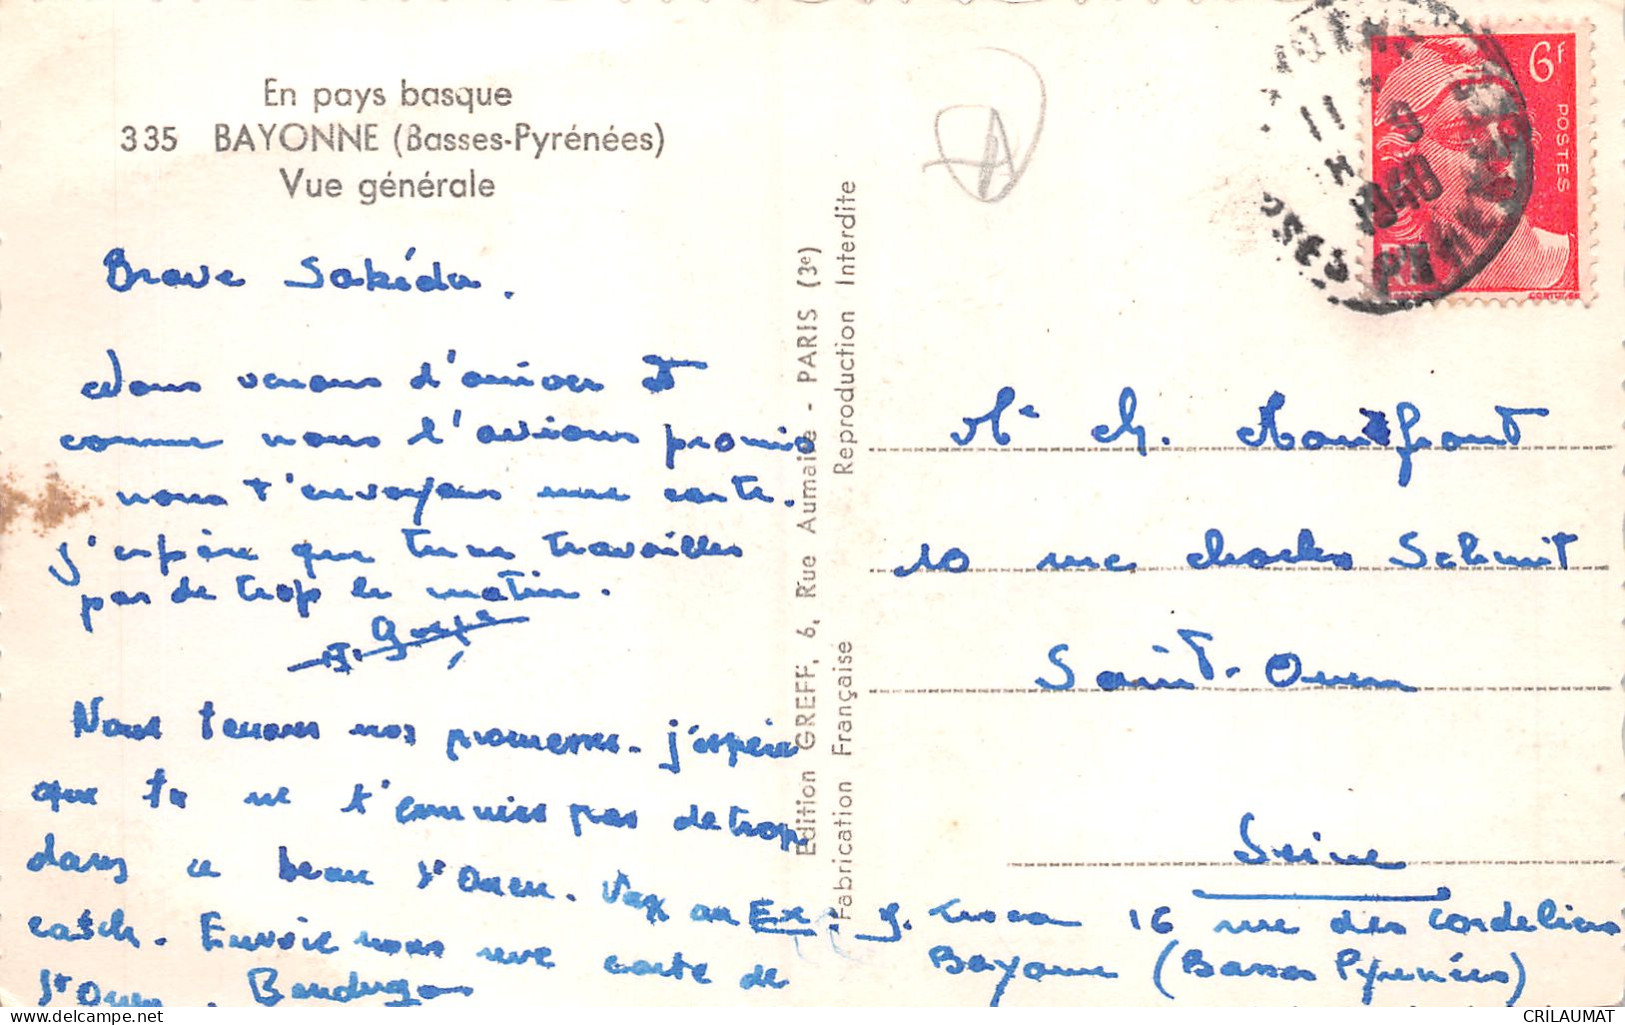 En pays basque
335 BAYONNE (Basses-Pyrénées)
Vue générale
Brave Sakéda.
Nous venons d'arriver et
comme nous l'avions promis
nous t'envoyons une carte.
j'espère que tu ne travailles
pas de trop le matin.
Nous tenons nos promesses. j'espère
que tu ne t'ennuies pas de trop
dans ce beau St Ouen. Vas au
catch. Envoie nous une carte de
St Ouen.
Edition GREFF, 6, Rue Aumaire - PARIS (3e)
Fabrication Française Reproduction Interdite
6f
POSTES
RF
11
8
Mr Ch. Montfront
10 rue charles Schmit
Saint-Ouen
Seine
Ex: J. 16 rue des Cordeliers
Bayonne (Basses Pyrénées)
CRILAUMAT